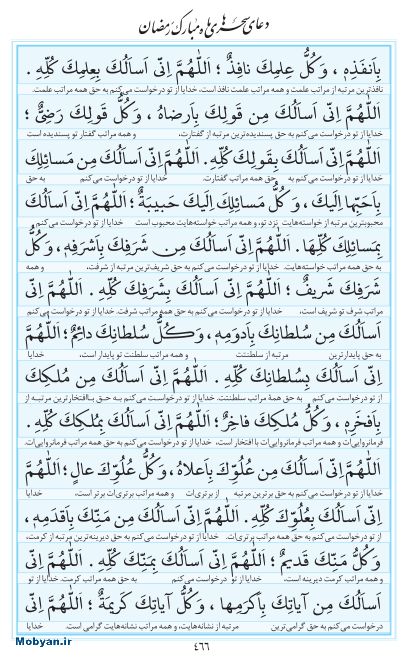 دعای سحرهای ماه مبارک رمضان
بِاَنفَذِهِ ، وَكُلُّ عِلمِكَ نافِذٌ ؛ اَللّٰهُمَّ اِنّى اَسأَلُكَ بِعِلمِكَ كُلِّهِ .
نافذترین مرتبه از مراتب علمت و همه مراتب علمت نافذ است، خدایا از تو درخواست می‌کنم به حق همه مراتب علمت.
اَللّٰهُمَّ اِنّى اَسأَلُكَ مِن قَولِكَ بِاَرضاهُ ، وَكُلُّ قَولِكَ رَضِىٌّ ؛
خدایا از تو درخواست می‌کنم به حق پسندیده‌ترین مرتبه از گفتارت، و همه مراتب گفتار تو پسندیده است
اَللّٰهُمَّ اِنّى اَسأَلُكَ بِقَولِكَ كُلِّهِ . اَللّٰهُمَّ اِنّى اَسأَلُكَ مِن مَسائِلِكَ
خدایا از تو درخواست می‌کنم به حق همه مراتب گفتارت. خدایا از تو درخواست می‌کنم به حق
بِاَحَبِّها اِلَيكَ ، وَكُلُّ مَسائِلِكَ اِلَيكَ حَبيبَةٌ ؛ اَللّٰهُمَّ اِنّى اَسأَلُكَ
محبوبترین مرتبه از خواسته‌هایت نزد تو، و همه مراتب خواسته‌هایت محبوب است خدایا از تو درخواست می‌کنم
بِمَسائِلِكَ كُلِّها . اَللّٰهُمَّ اِنّى اَسأَلُكَ مِن شَرَفِكَ بِاَشرَفِهِ ، وَكُلُّ
به حق همه مراتب خواسته‌هایت. خدایا از تو درخواست می‌کنم به حق شریف‌ترین مرتبه از شرفت، و همه
شَرَفِكَ شَريفٌ ؛ اَللّٰهُمَّ اِنّى اَسأَلُكَ بِشَرَفِكَ كُلِّهِ . اَللّٰهُمَّ اِنّى
مراتب شرف تو شریف است، خدایا از تو درخواست می‌کنم به حق همه مراتب شرفت. خدایا از تو درخواست می‌کنم
اَسأَلُكَ مِن سُلطانِكَ بِاَدوَمِهِ ، وَكُلُّ سُلطانِكَ دائِمٌ ؛ اَللّٰهُمَّ
به حق پایدارترین مرتبه از سلطنتت و همه مراتب سلطنت تو پایدار است، خدایا
اِنّى اَسأَلُكَ بِسُلطانِكَ كُلِّهِ . اَللّٰهُمَّ اِنّى اَسأَلُكَ مِن مُلكِكَ
از تو درخواست می‌کنم به حق همهٔ مراتب سلطنتت. خدایا از تو درخواست می‌کنم به حق باافتخارترین مرتبه از
بِاَفخَرِهِ ، وَكُلُّ مُلكِكَ فاخِرٌ ؛ اَللّٰهُمَّ اِنّى اَسأَلُكَ بِمُلكِكَ كُلِّهِ .
فرمانروایی‌ات و همه مراتب فرمانروایی‌ات با افتخار است، خدایا از تو درخواست می‌کنم به حق همه مراتب فرمانروایی‌ات.
اَللّٰهُمَّ اِنّى اَسأَلُكَ مِن عُلُوِّكَ بِاَعلاهُ ، وَكُلُّ عُلُوِّكَ عالٍ ؛ اَللّٰهُمَّ
خدایا از تو درخواست می‌کنم به حق برترین مرتبه از برتری‌ات و همه مراتب برتری‌ات برتر است، خدایا
اِنّى اَسأَلُكَ بِعُلُوِّكَ كُلِّهِ . اَللّٰهُمَّ اِنّى اَسأَلُكَ مِن مَنِّكَ بِاَقدَمِهِ ،
از تو درخواست می‌کنم به حق همه مراتب برتری‌ات. خدایا از تو درخواست می‌کنم به حق دیرینه‌ترین مرتبه از کرمت،
وَكُلُّ مَنِّكَ قَديمٌ ؛ اَللّٰهُمَّ اِنّى اَسأَلُكَ بِمَنِّكَ كُلِّهِ . اَللّٰهُمَّ اِنّى
و همه مراتب کرمت دیرینه است، خدایا از تو درخواست می‌کنم به حق همه مراتب کرمت. خدایا از تو
اَسأَلُكَ مِن آياتِكَ بِاَكرَمِها ، وَكُلُّ آياتِكَ كَريمَةٌ ؛ اَللّٰهُمَّ اِنّى
درخواست می‌کنم به حق گرامی‌ترین مرتبه از نشانه‌هایت، و همه مراتب نشانه‌هایت گرامی است. خدایا از تو
۴۶۶
Mobyan.ir